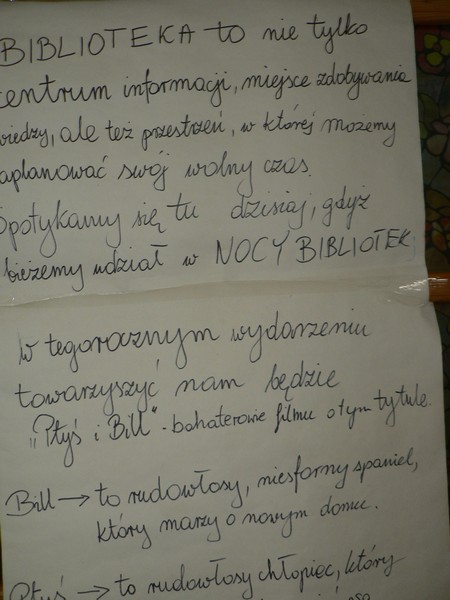 BIBLIOTEKA to nie tylko
centrum informacji, miejsce zdobywania
wiedzy, ale też przestrzeń, w której możemy
zaplanować swój wolny czas.
Spotykamy się tu dzisiaj, gdyż
bieżemy udział w NOCY BIBLIOTEK
W tegorocznym wydarzeniu
towarzyszyć nam będzie
„Ptyś i Bill" - bohaterowie filmu o tym tytule.
Bill → to rudowłosy, niesforny spaniel,
który marzy o nowym domu.
Ptyś → to rudowłosy chłopiec, który